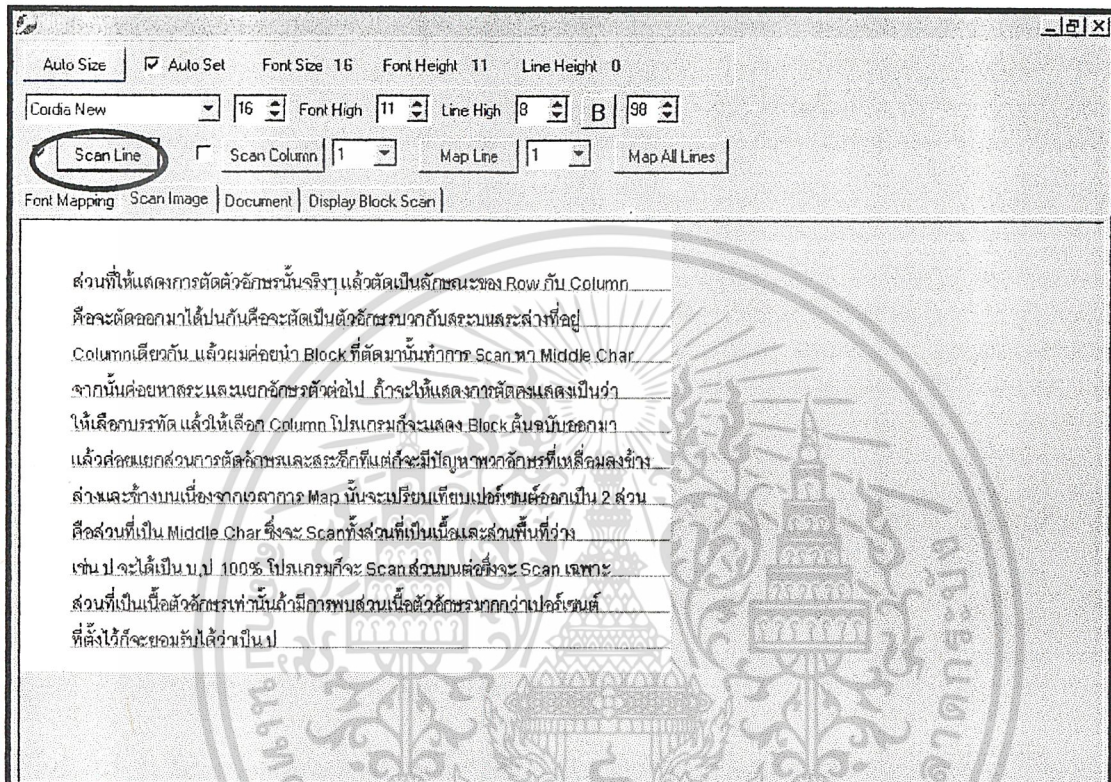 Auto Size Auto Set Font Size 16 Font Height 11 Line Height 0
Cordia New 16 Font High 11 Line High 8 B 98
Scan Line Scan Column 1 Map Line 1 Map All Lines
Font Mapping Scan Image Document Display Block Scan
ส่วนที่ให้แสดงการตัดตัวอักษรนั้นจริงๆ แล้วตัดเป็นลักษณะของ Row กับ Column
คือจะตัดออกมาได้ปนกันคือจะตัดเป็นตัวอักษรบวกกับสระบนสระล่างที่อยู่
Columnเดียวกัน แล้วผมค่อยนำ Block ที่ตัดมานั้นทำการ Scan หา Middle Char
จากนั้นค่อยหาสระ และแยกอักษรตัวต่อไป ถ้าจะให้แสดงการตัดคงแสดงเป็นว่า
ให้เลือกบรรทัด แล้วให้เลือก Column โปรแกรมก็จะแสดง Block ต้นฉบับออกมา
แล้วค่อยแยกส่วนการตัดอักษรและสระอีกทีแต่ก็จะมีปัญหาพวกอักษรที่เหลื่อมลงข้าง
ล่างและข้างบนเนื่องจากเวลาการ Map นั้นจะเปรียบเทียบเปอร์เซนต์ออกเป็น 2 ส่วน
คือส่วนที่เป็น Middle Char ซึ่งจะ Scanทั้งส่วนที่เป็นเนื้อและส่วนพื้นที่ว่าง
เช่น ป จะได้เป็น บ,ป 100% โปรแกรมก็จะ Scan ส่วนบนต่อซึ่งจะ Scan เฉพาะ
ส่วนที่เป็นเนื้อตัวอักษรเท่านั้นถ้ามีการพบส่วนเนื้อตัวอักษรมากกว่าเปอร์เซนต์
ที่ตั้งไว้ก็จะยอมรับได้ว่าเป็น ป